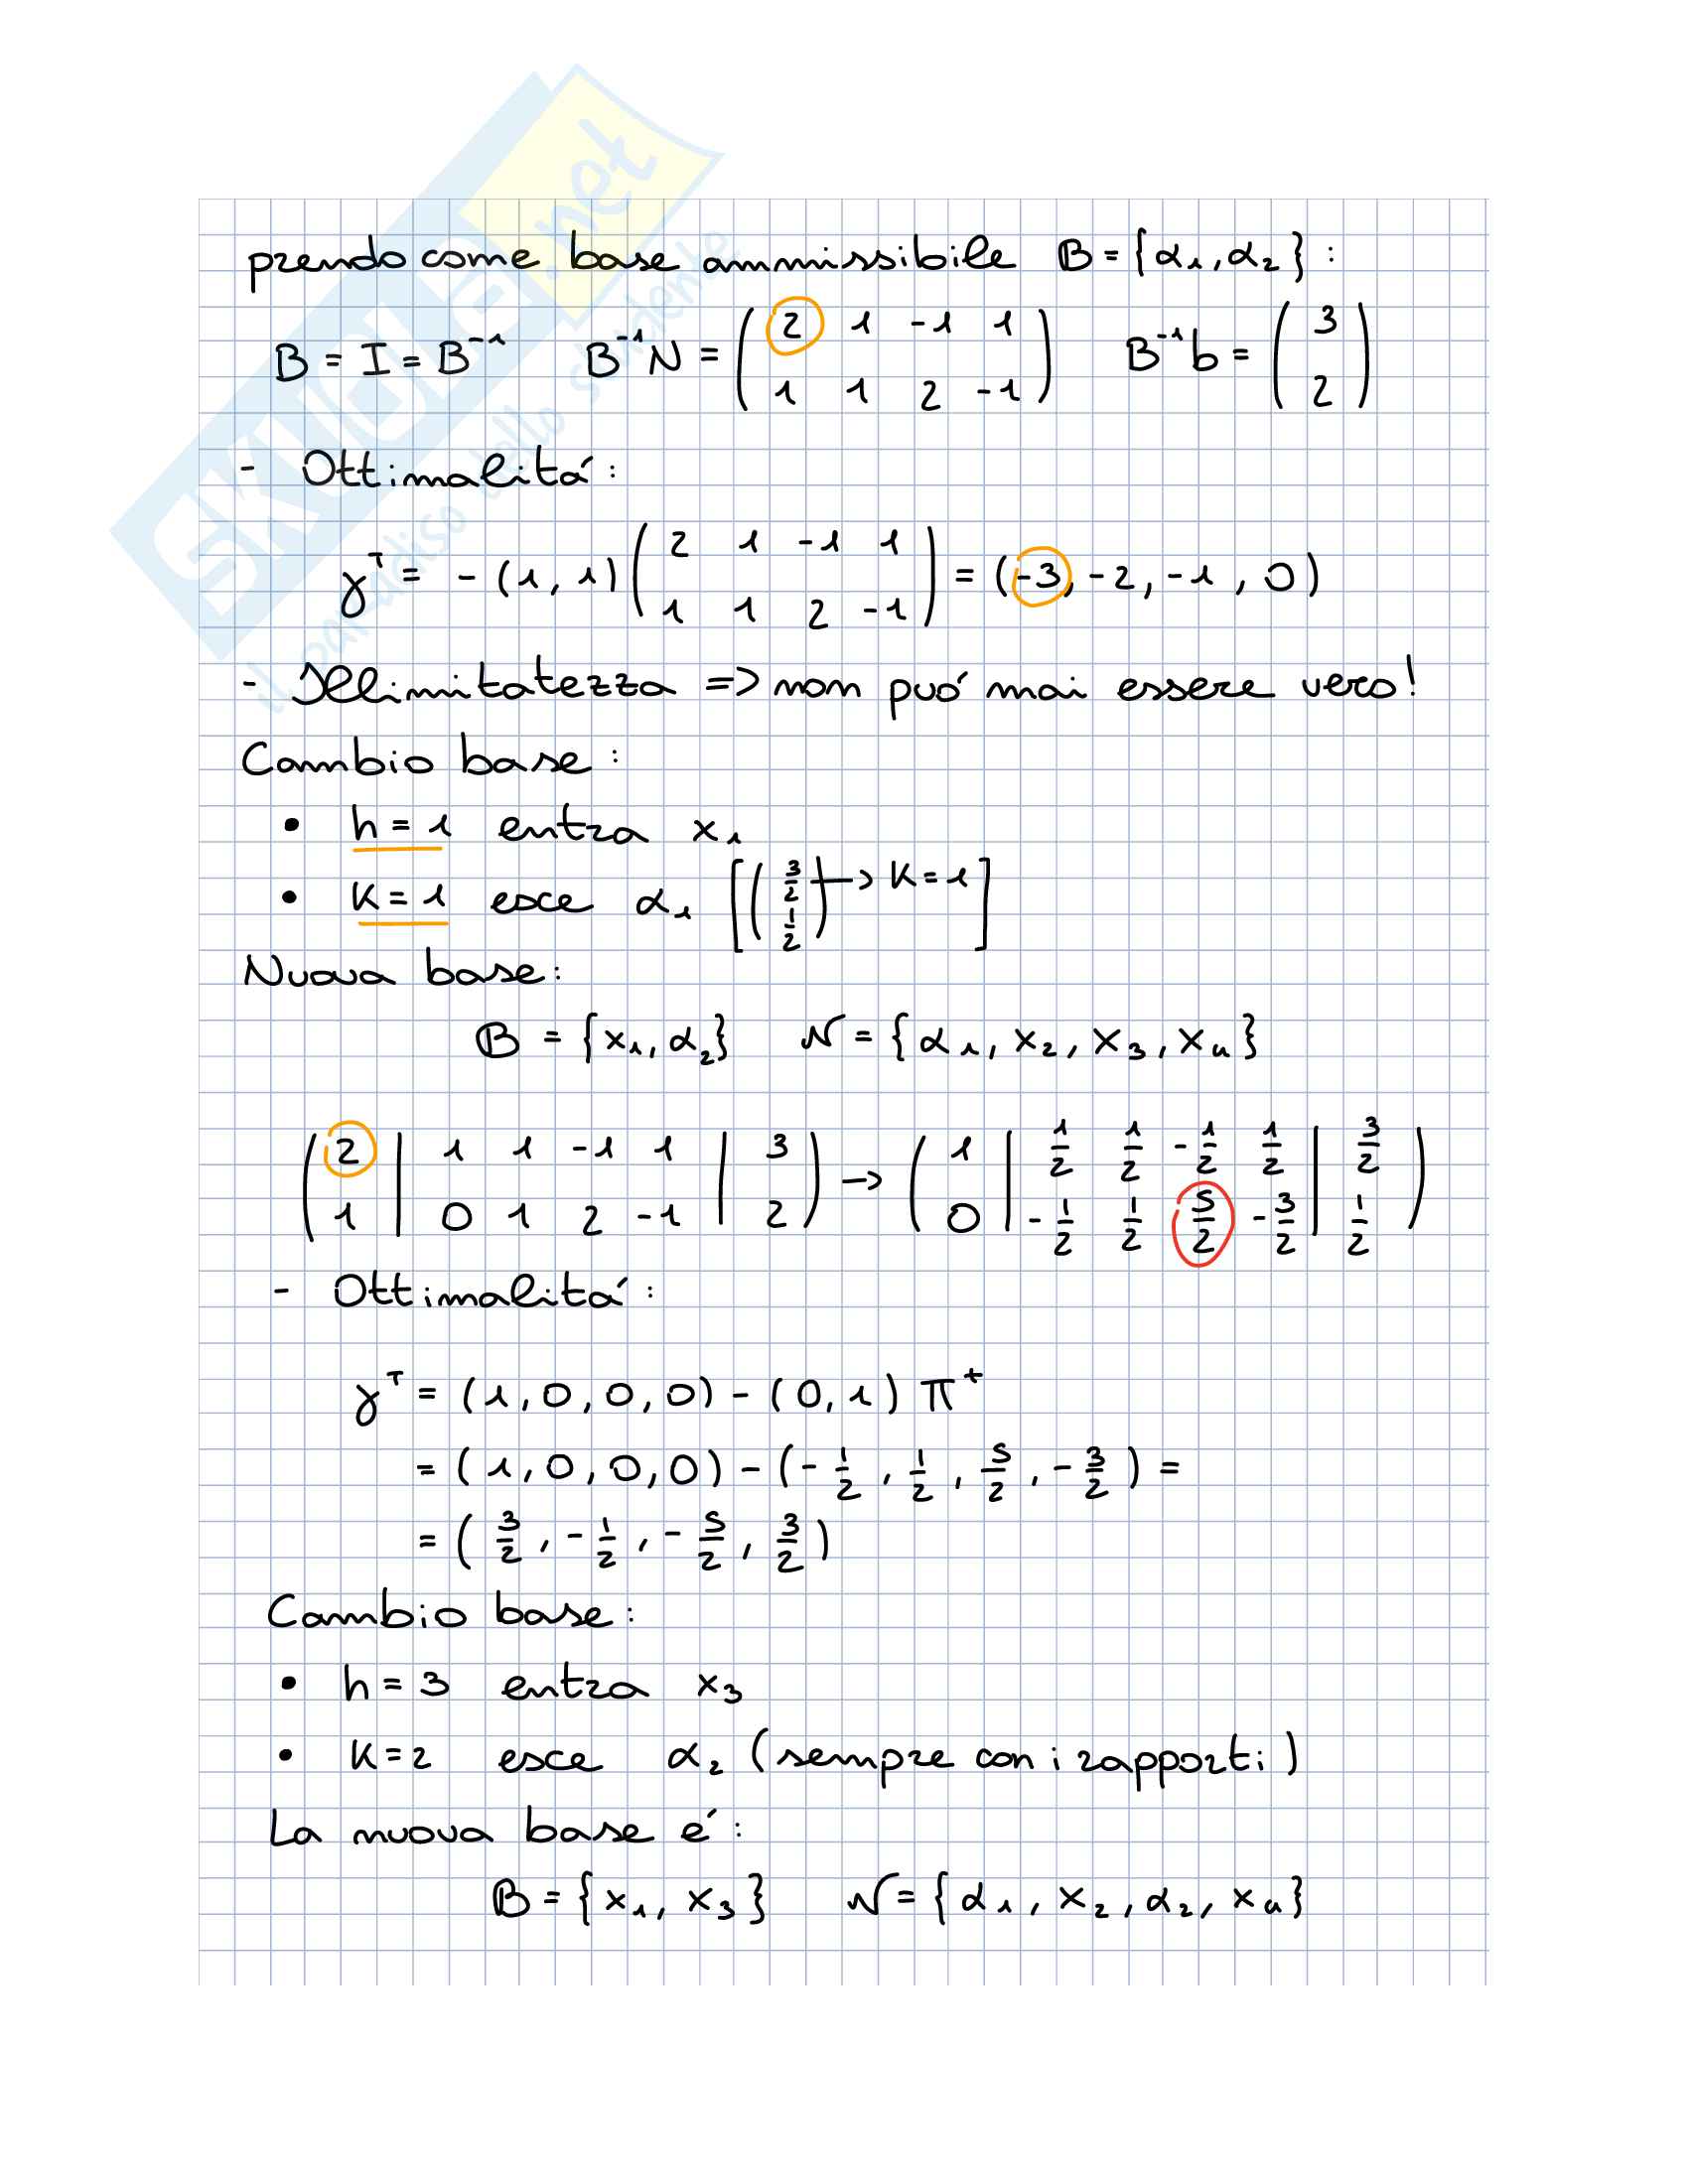 SKUOLA.net
il paradiso dello studente
prendo come base ammissibile B = {α₁, α₂} :
B = I = B⁻¹   B⁻¹N = ( 2 1 -1 1 ; 1 1 2 -1 )   B⁻¹b = ( 3 ; 2 )
- Ottimalitá:
γᵀ = - (1, 1) ( 2 1 -1 1 ; 1 1 2 -1 ) = (-3, -2, -1, 0)
- Illimitatezza => non puó mai essere vero!
Cambio base:
• h = 1 entra x₁
• K = 1 esce α₁ [ ( 3/2 ; 1/2 ) → K = 1 ]
Nuova base:
B = {x₁, α₂}   N = {α₁, x₂, x₃, x₄}
( 2 | 1 1 -1 1 | 3 ; 1 | 0 1 2 -1 | 2 ) → ( 1 | 1/2 1/2 -1/2 1/2 | 3/2 ; 0 | -1/2 1/2 5/2 -3/2 | 1/2 )
- Ottimalitá:
γᵀ = (1, 0, 0, 0) - (0, 1) π⁺
= (1, 0, 0, 0) - (-1/2, 1/2, 5/2, -3/2) =
= (3/2, -1/2, -5/2, 3/2)
Cambio base:
• h = 3 entra x₃
• K = 2 esce α₂ (sempre con i rapporti)
La nuova base é:
B = {x₁, x₃}   N = {α₁, x₂, α₂, x₄}